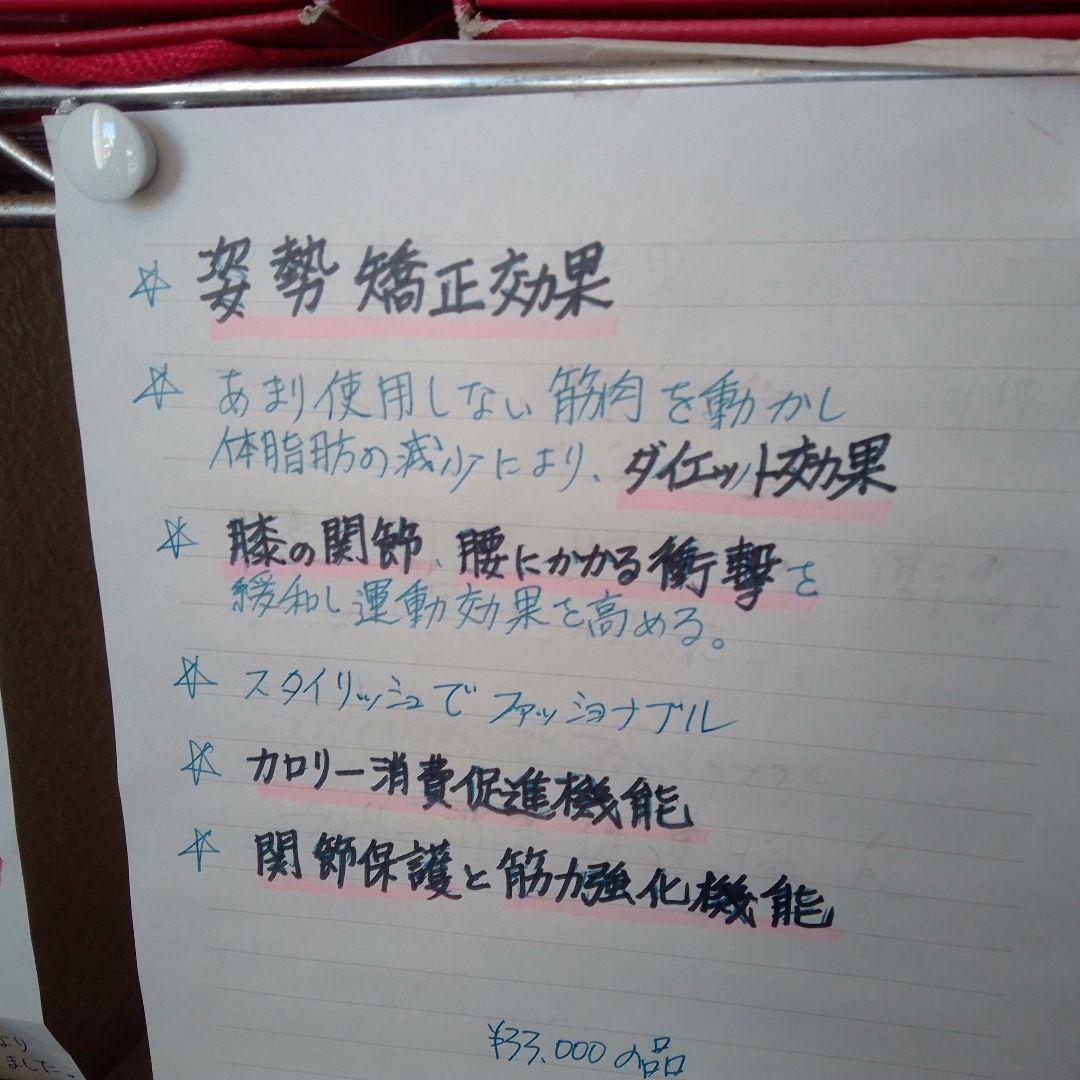 ☆ 姿勢矯正効果
☆ あまり使用しない筋肉を動かし
体脂肪の減少により、ダイエット効果
☆ 膝の関節、腰にかかる衝撃を
緩和し運動効果を高める。
☆ スタイリッシュでファッショナブル
☆ カロリー消費促進機能
☆ 関節保護と筋力強化機能
¥33,000の品
より
ました。